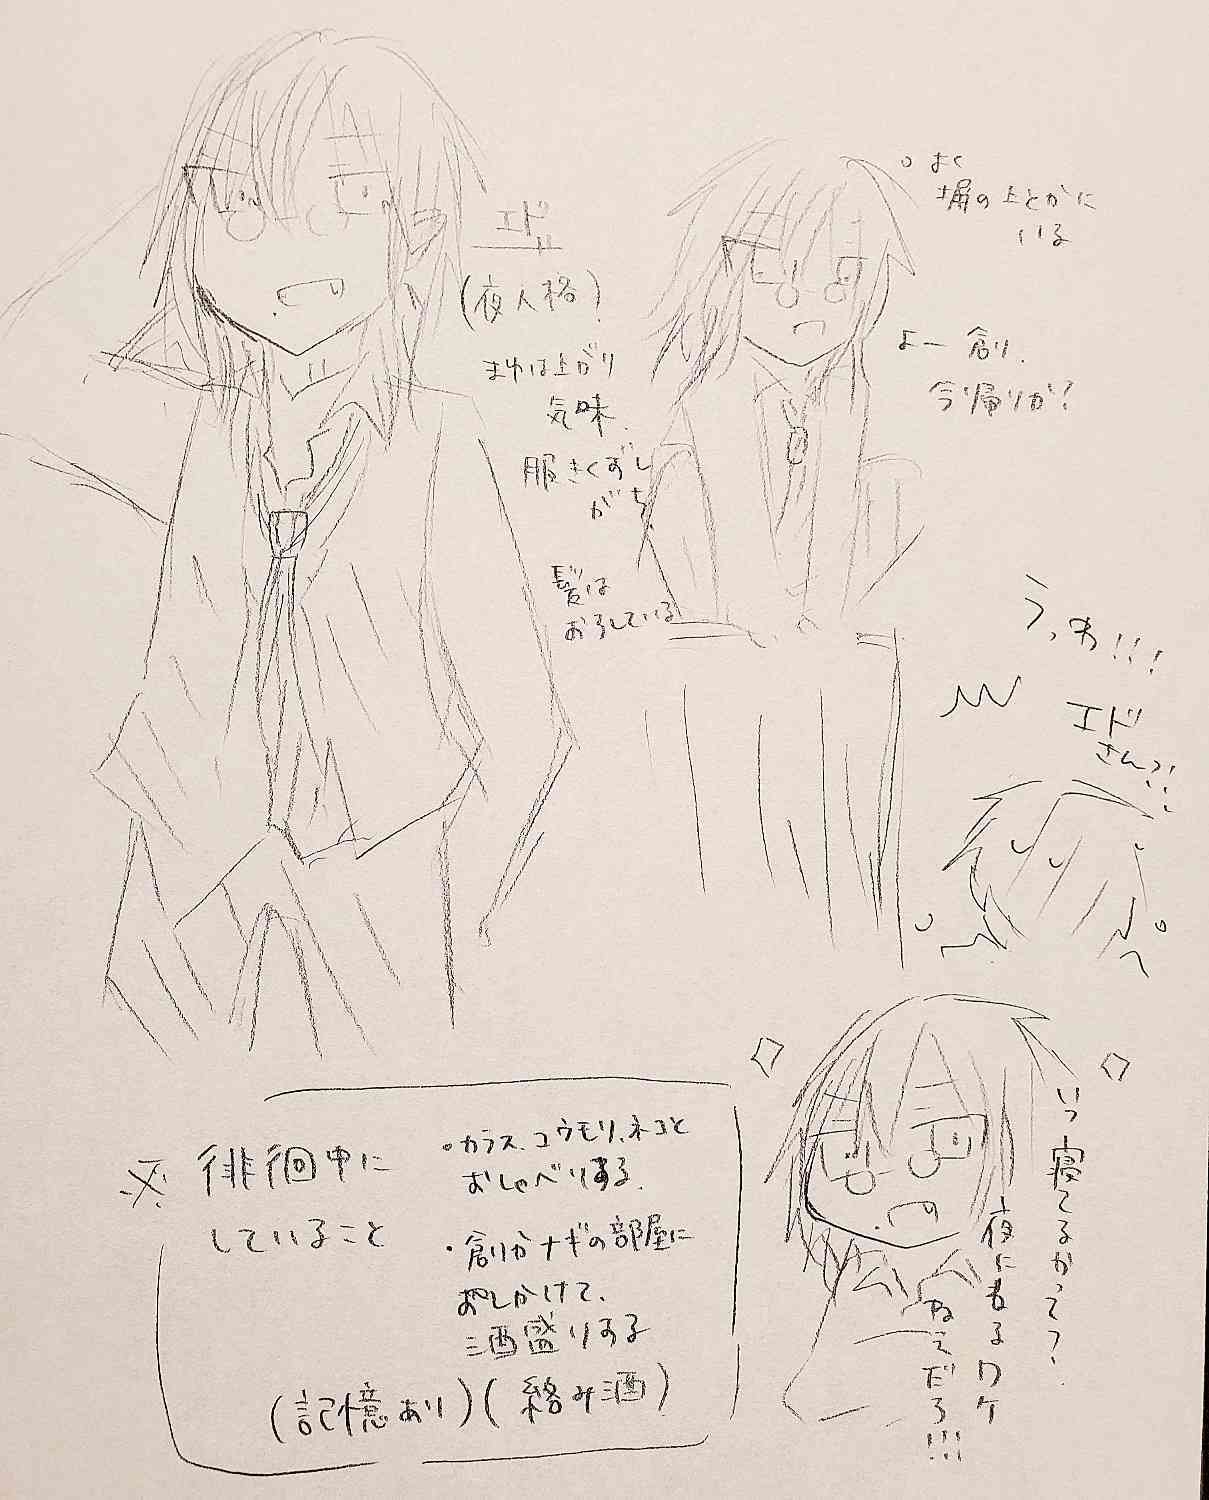 エド
(夜人格)
まゆは上がり
気味
服きくずし
がち
髪は
おろしている
。よく
塀の上とかに
いる
よー創、
今帰りか?
うっわ!!!
エド
さん?!
いつ寝てるかって?
夜にねるワケ
ねえだろ!!!
※徘徊中に
していること
・カラス、コウモリ、ネコと
おしゃべりする。
・創かナギの部屋に
おしかけて、
酒盛りする
(記憶あり)(絡み酒)